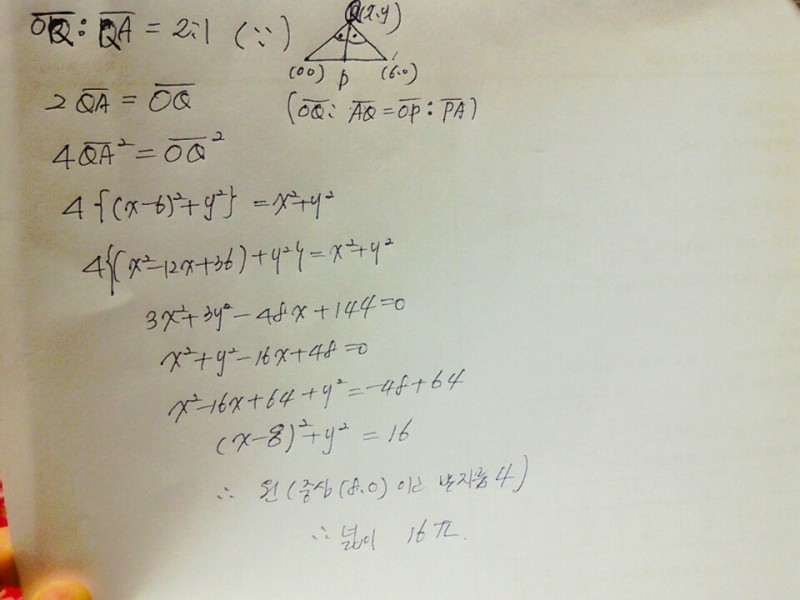 OQ : QA = 2:1 (∵)
Q(x.y)
(0.0) P (6.0)
2QA = OQ
(OQ : AQ = OP : PA)
4QA² = OQ²
4{(x-6)²+y²} = x²+y²
4{(x²-12x+36)+y²} = x²+y²
3x²+3y²-48x+144=0
x²+y²-16x+48=0
x²-16x+64+y²=-48+64
(x-8)²+y² = 16
∴ 원 (중심 (8.0) 이고 반지름 4)
∴ 넓이 16π.